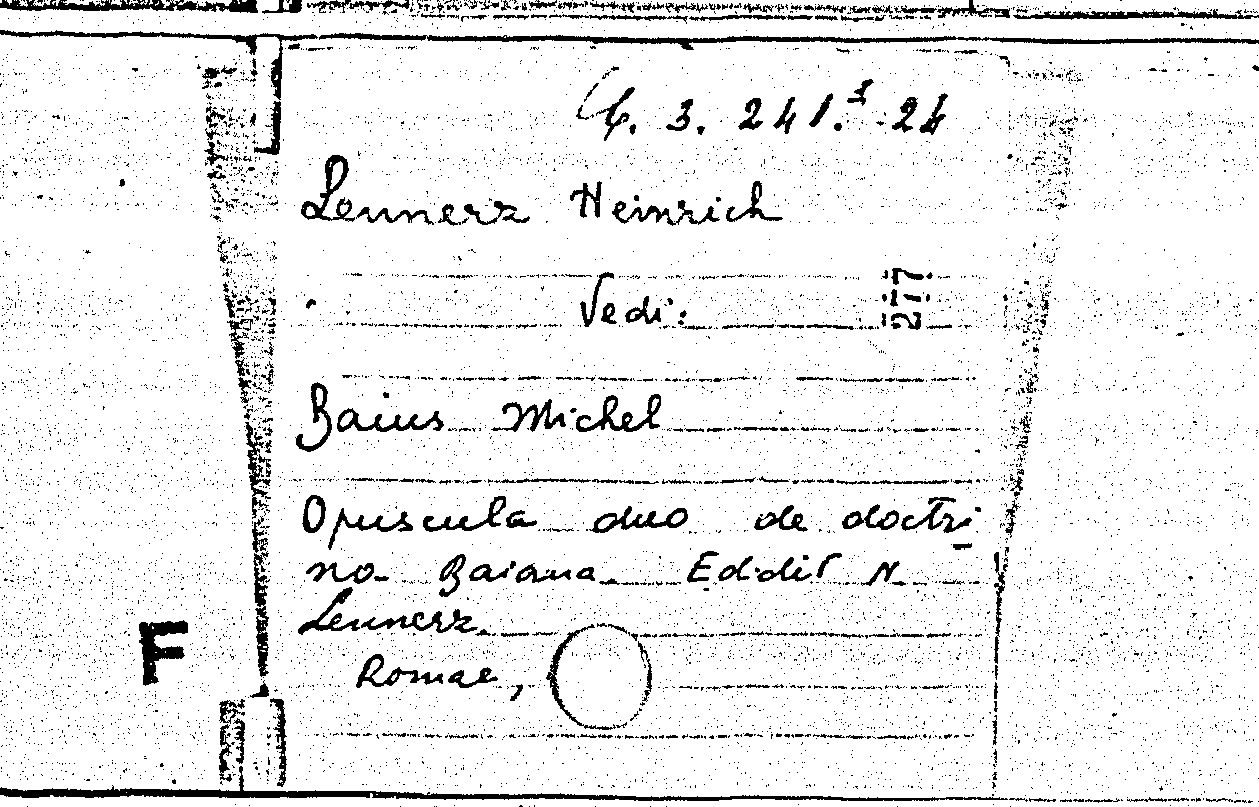 6. 3. 241.³ 24
Lennerz Heinrich
277
Vedi:
Baius Michel
Opuscula duo de doctri
na Baiana. Edidit H
Lennerz.
Romae,
F